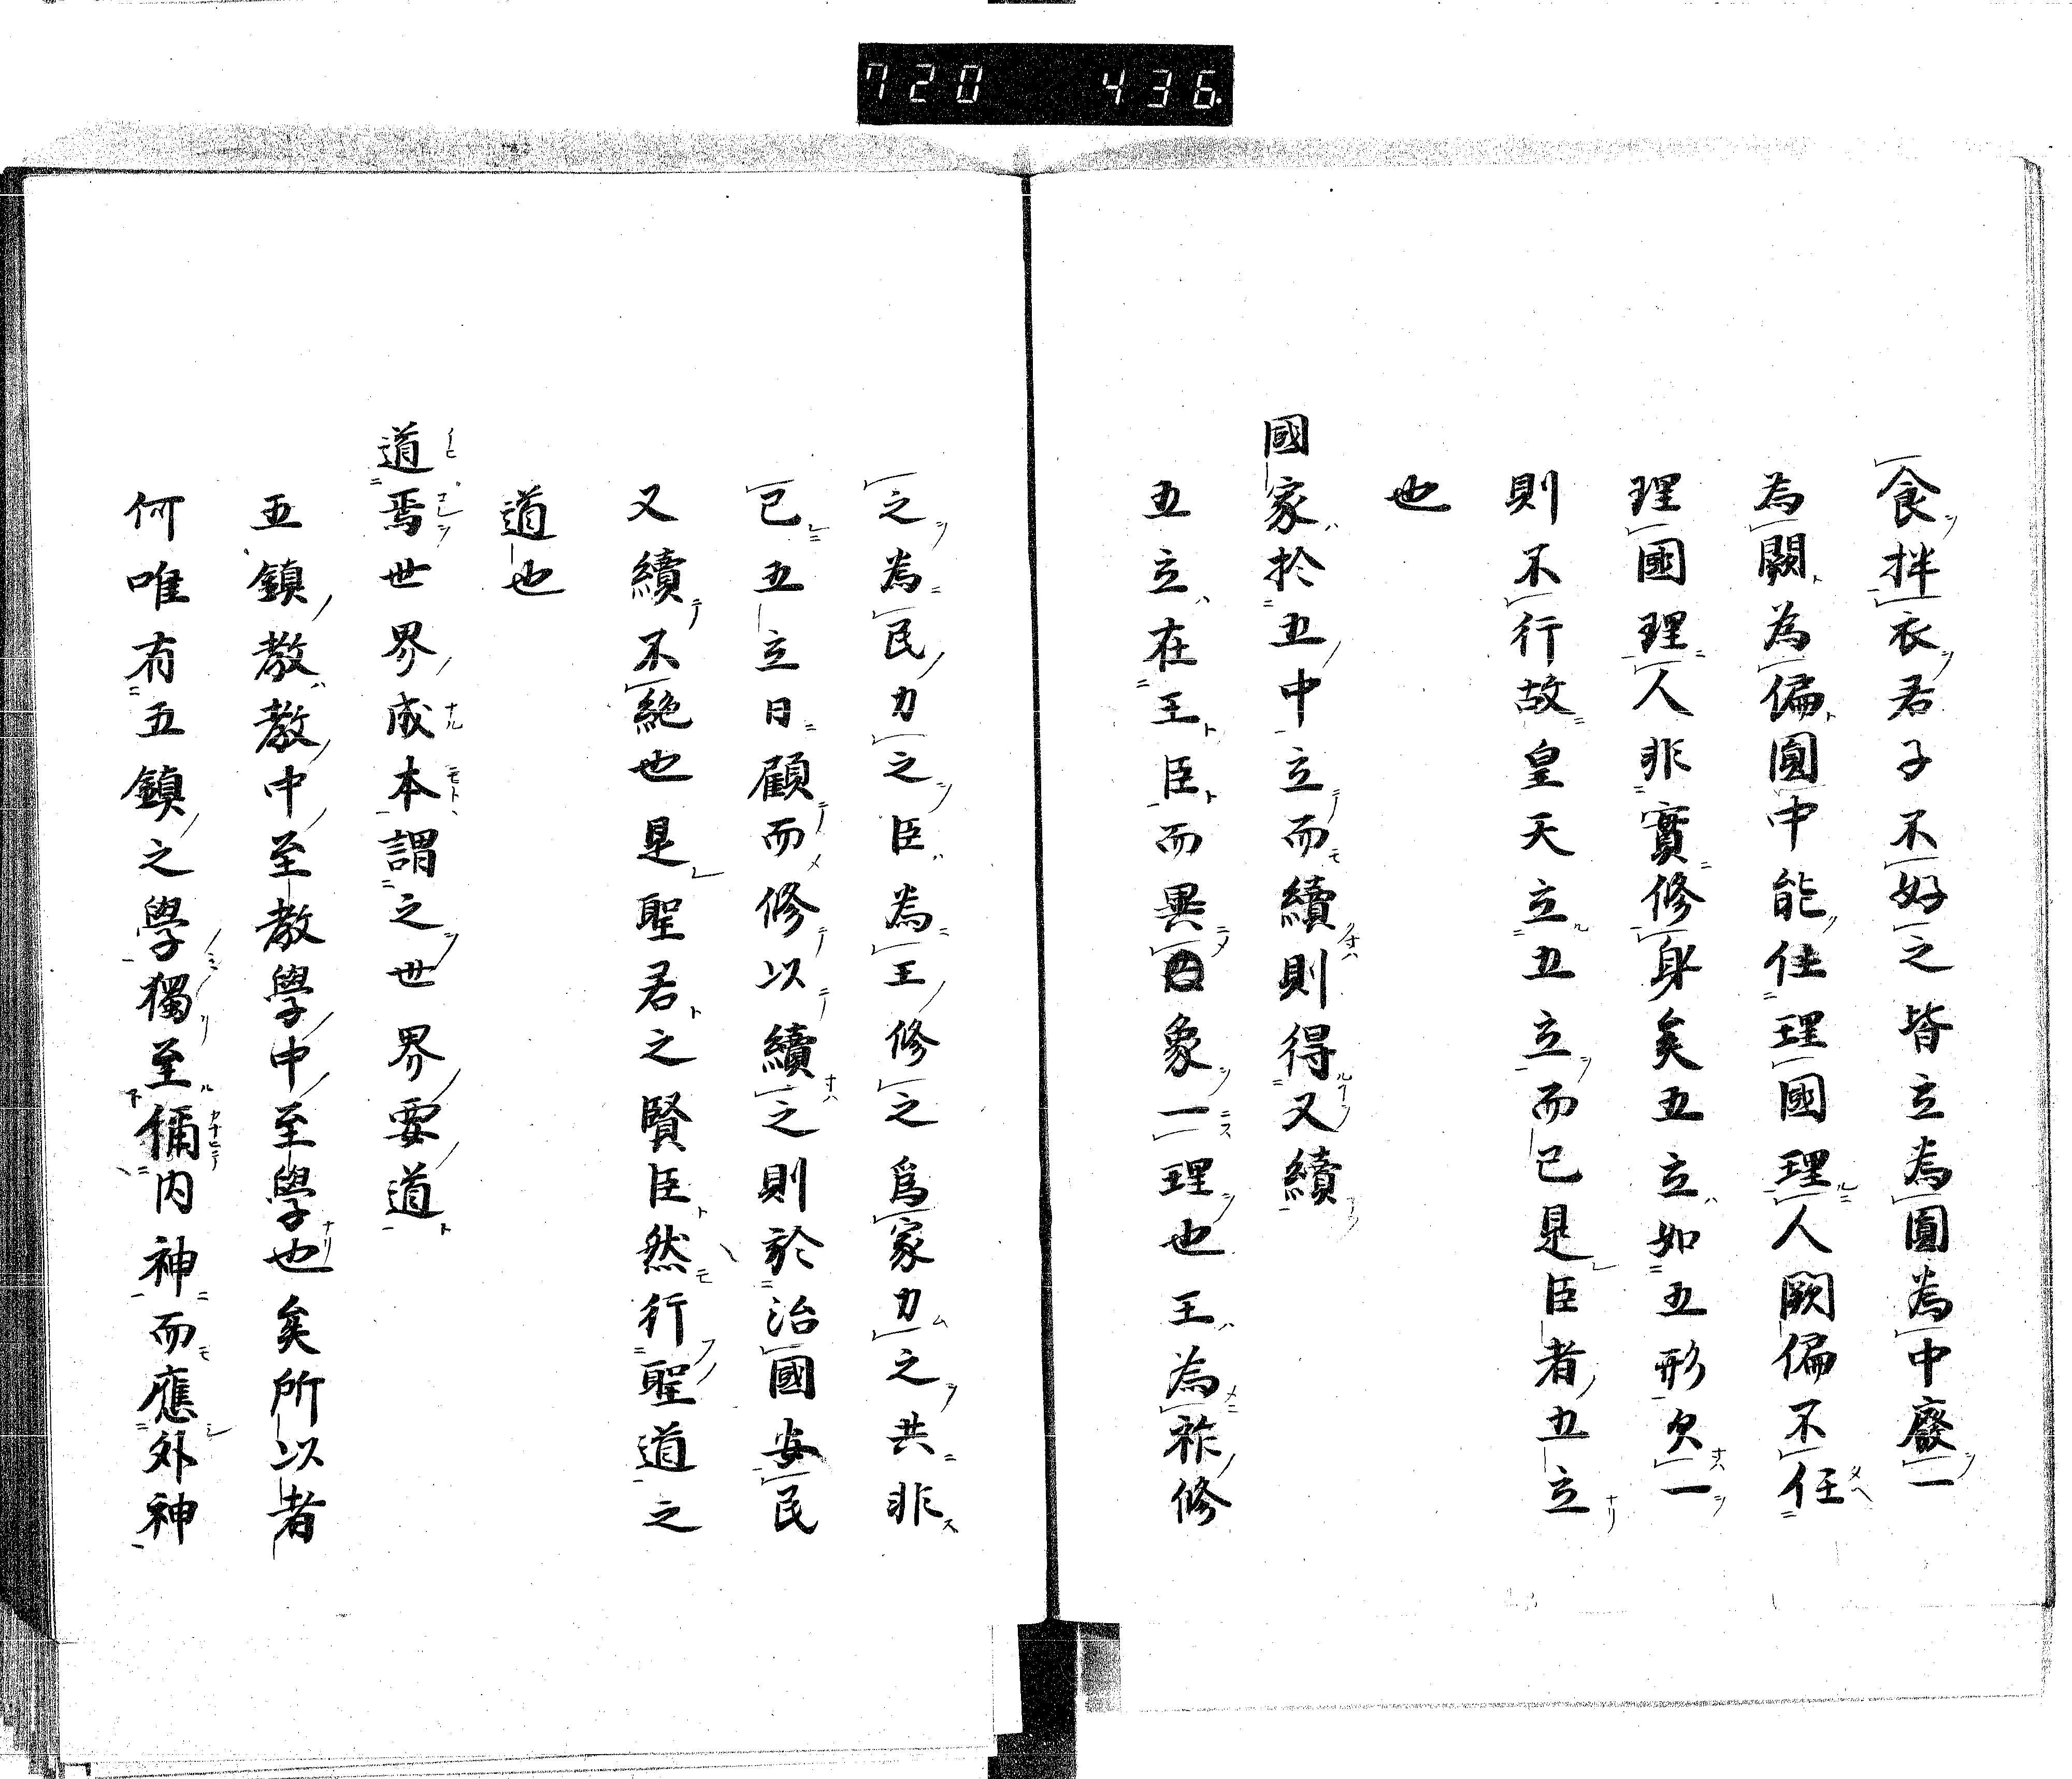 720 436.
食拌衣君子不好之皆立為圓為中廢一
為闕為偏圓中能任理國理人闕偏不任
理國理人非實修身矣五立如五形欠一
則不行故皇天立五立而已是臣者五立
也
國家於五中立而續則得又續
五立在王臣而異象一理也王為祚修
之為民力之臣為王修之為家力之共非
已五立日顧而修以續之則於治國安民
又續不絕也是聖君之賢臣然行聖道之
道也
道焉世界成本謂之世界要道
五鎮教教中至教學中至學也矣所以者
何唯有五鎮之學獨至備内神而應外神